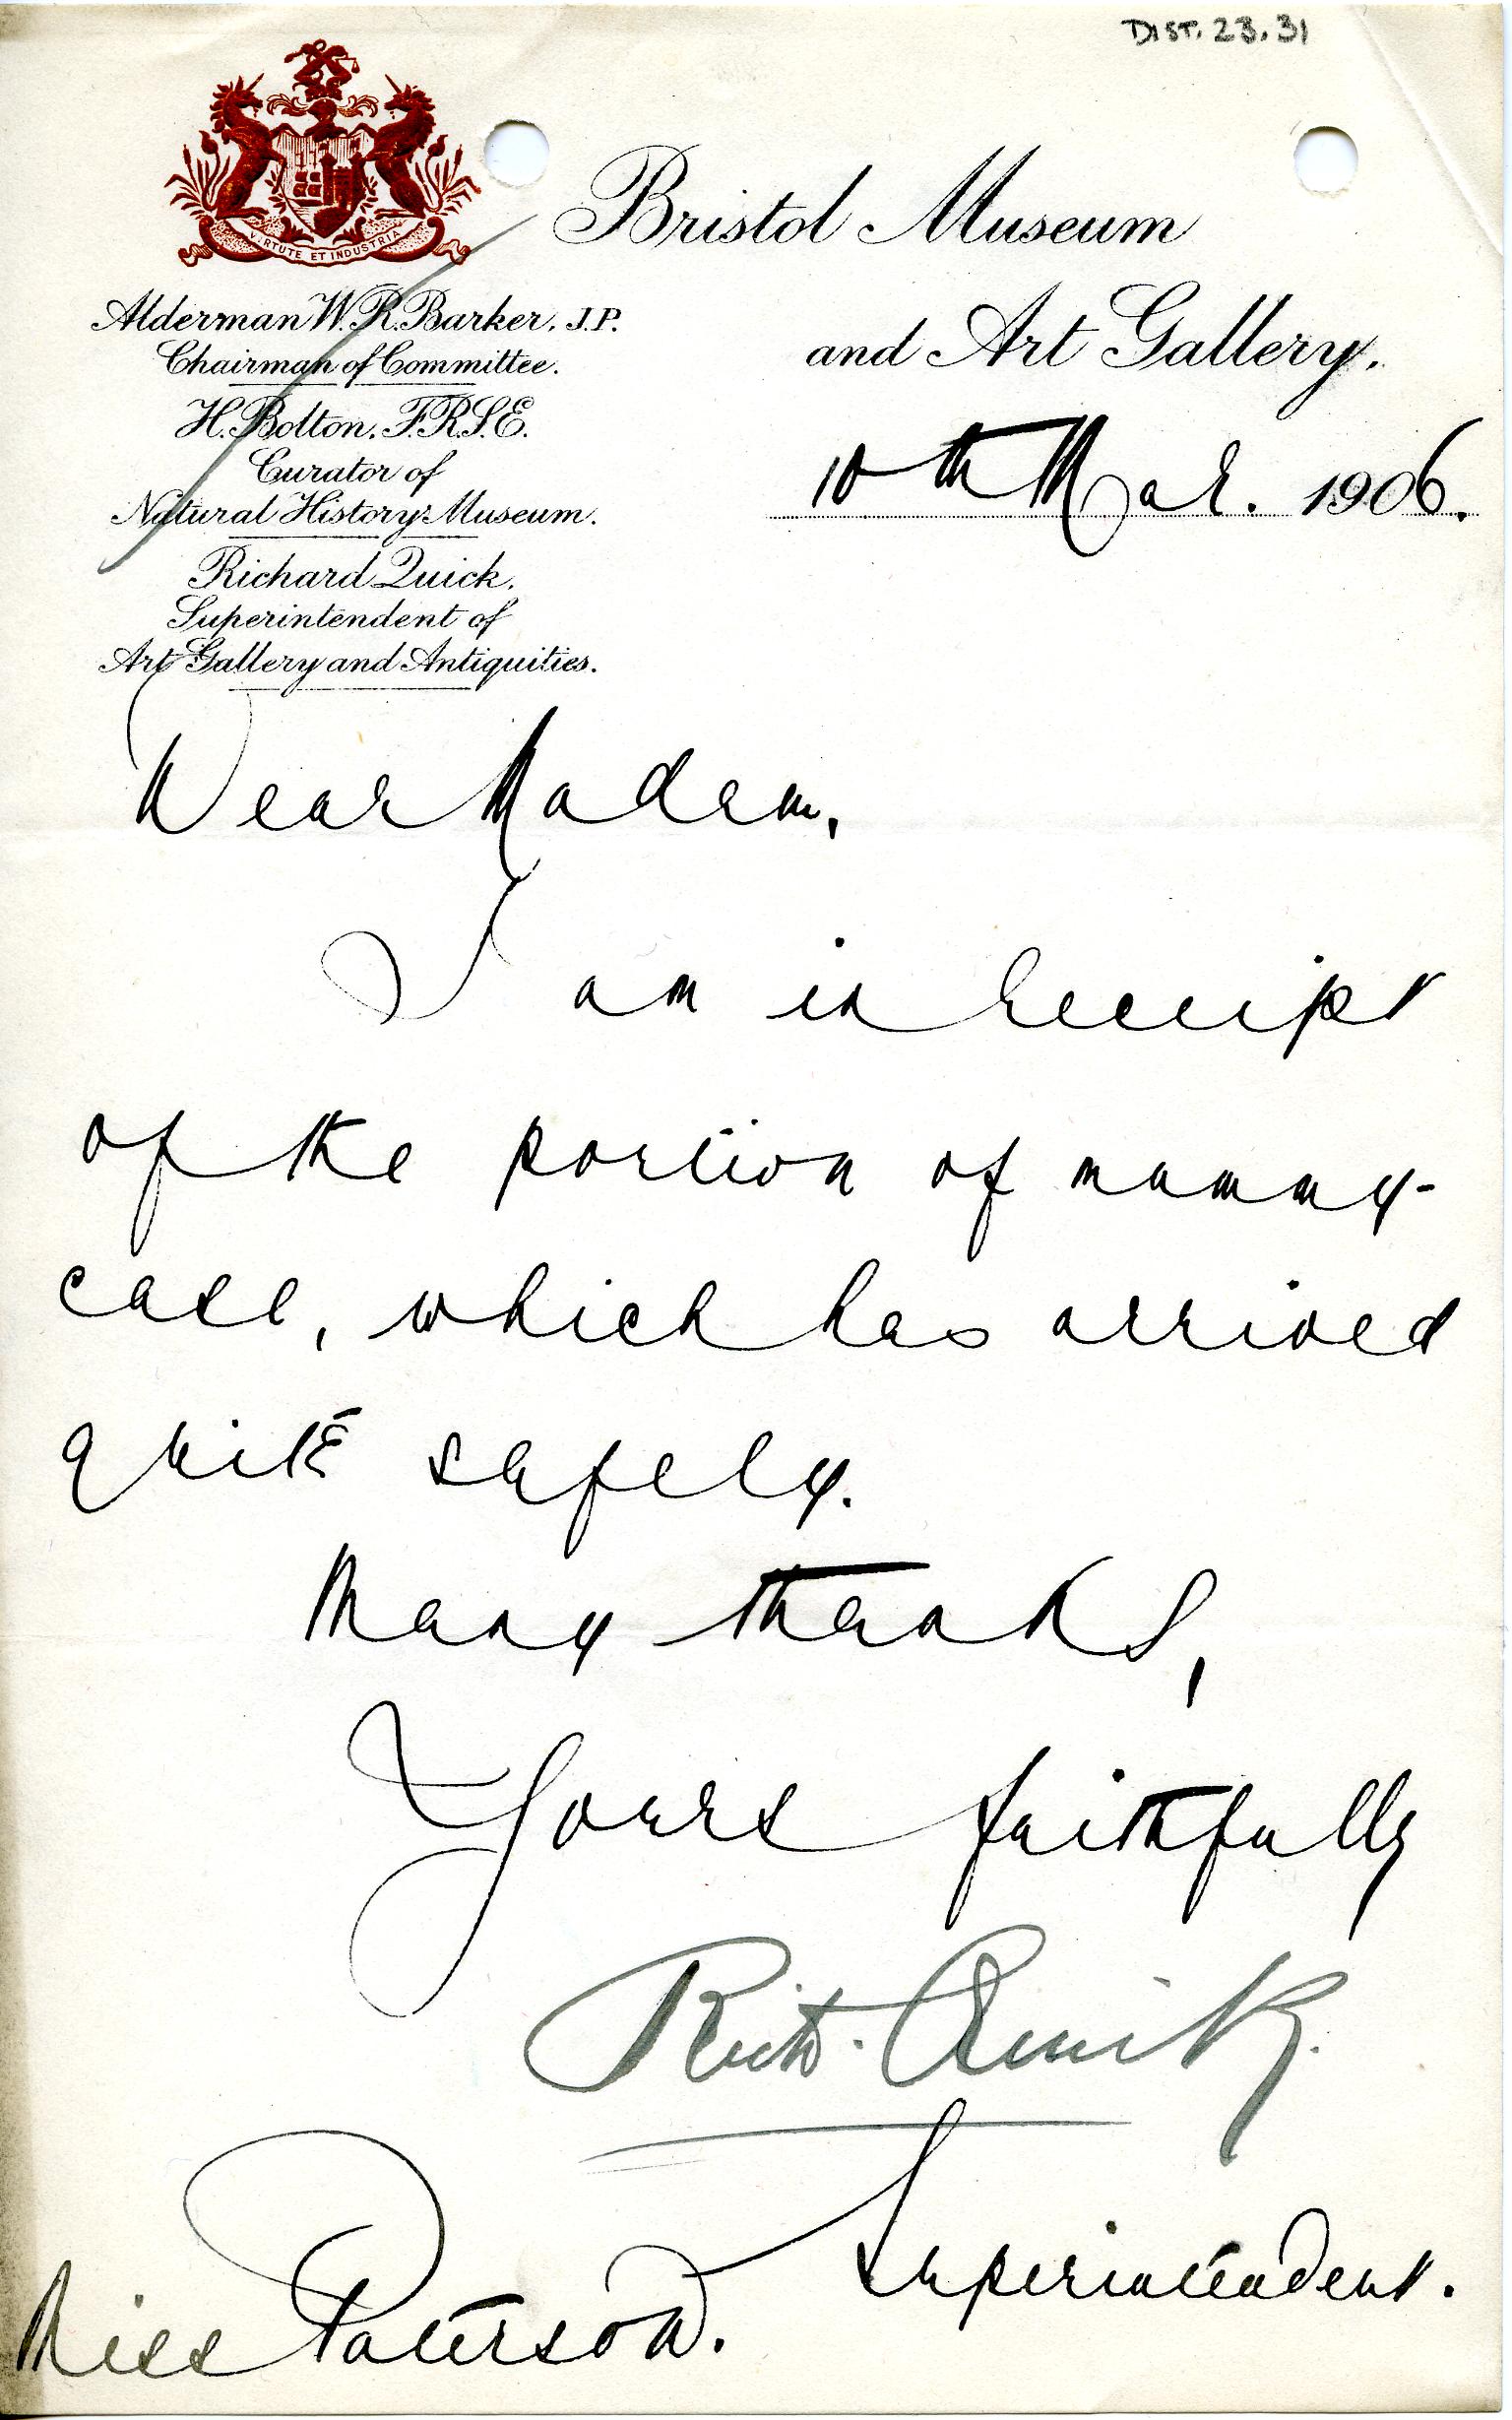 DIST. 23.31
VIRTUTE ET INDUSTRIA
Bristol Museum
and Art Gallery.
Alderman W.R. Barker, J.P.
Chairman of Committee.
H. Bolton, F.R.S.E.
Curator of
Natural History Museum.
Richard Quick,
Superintendent of
Art Gallery and Antiquities.
10th Mar. 1906.
Dear Madam,
I am in receipt
of the portion of mummy-
case, which has arrived
quite safely.
Many thanks,
Yours faithfully
Richd. Quick.
Superintendent.
Miss Paterson.